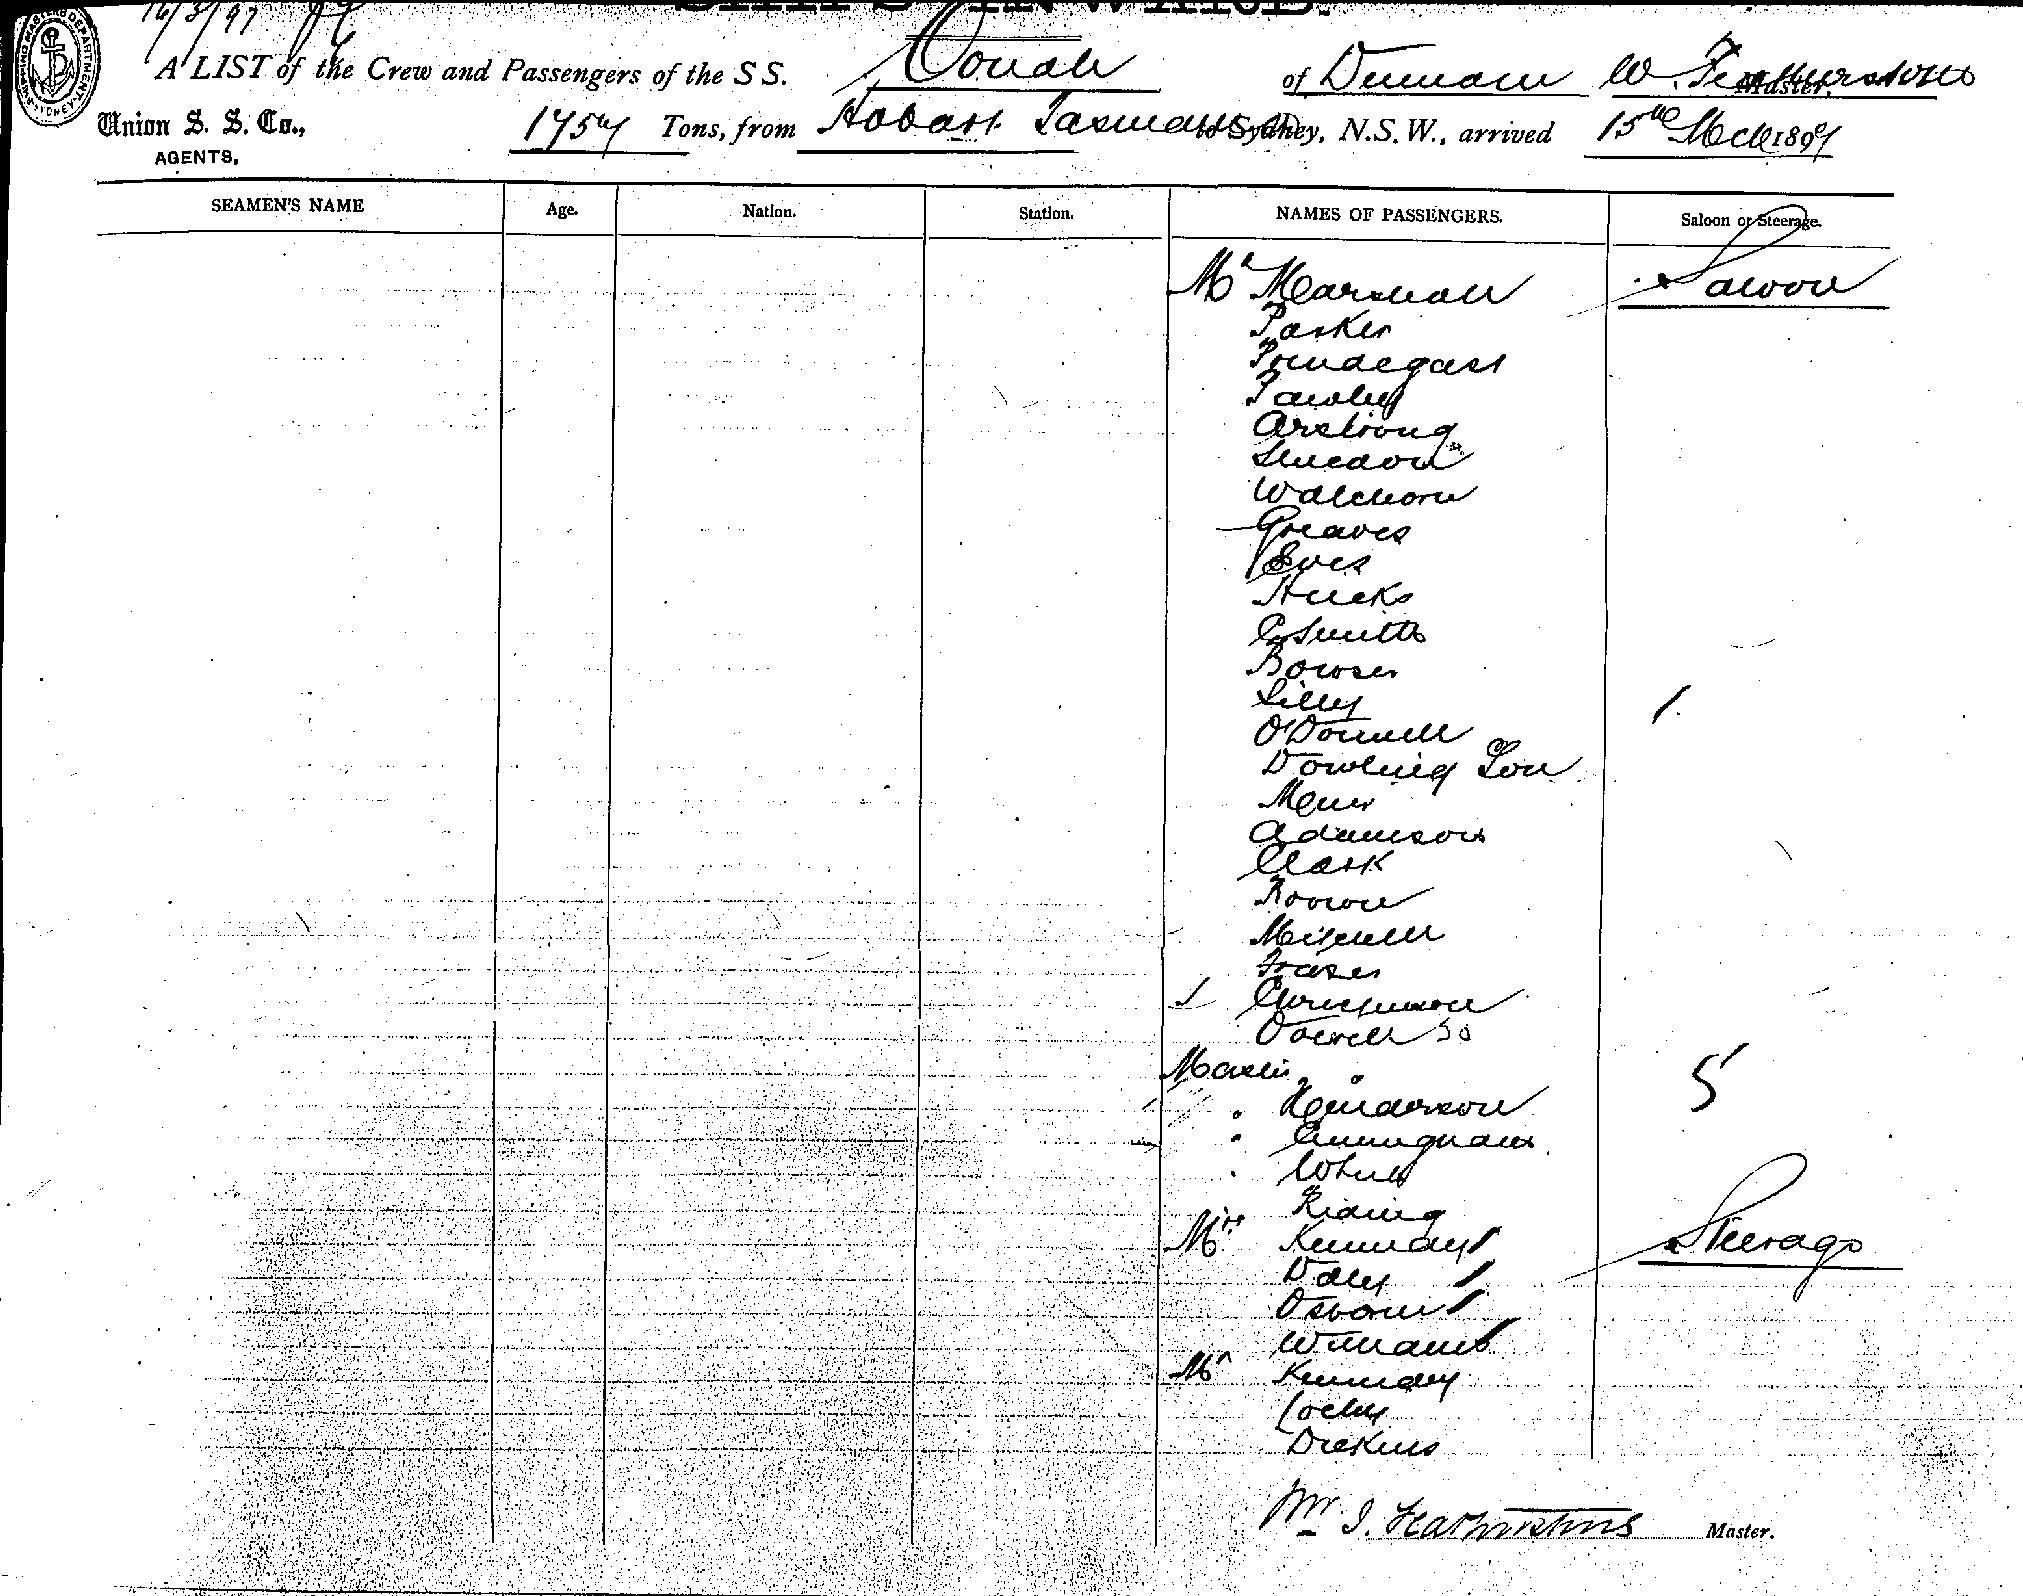 16/3/97
A LIST of the Crew and Passengers of the S S. Oonah of Dunedin W. Featherstone Master.
Union S. S. Co., AGENTS, 1757 Tons, from Hobart Tasmania to Sydney, N.S.W., arrived 15th Mch 1897
SEAMEN'S NAME Age. Nation. Station. NAMES OF PASSENGERS. Saloon or Steerage.
Mr Marshall Saloon
Parker
Prendegast
Pawley
Arstrong
Walchorn
Greaves
Eves
Hicks
C Smith
Bowser
Lilly 1
O'Donnell
Dowling Son
Adamson
Clark
Brown
Mitchell
Fraser
Powell
Master 5
Henderson
Cuningham
White
Riding
Mrs Kennedy Steerage
Daley
Osborne
Williams
Mr Kennedy
Dickens
Wm J. Featherstone Master.